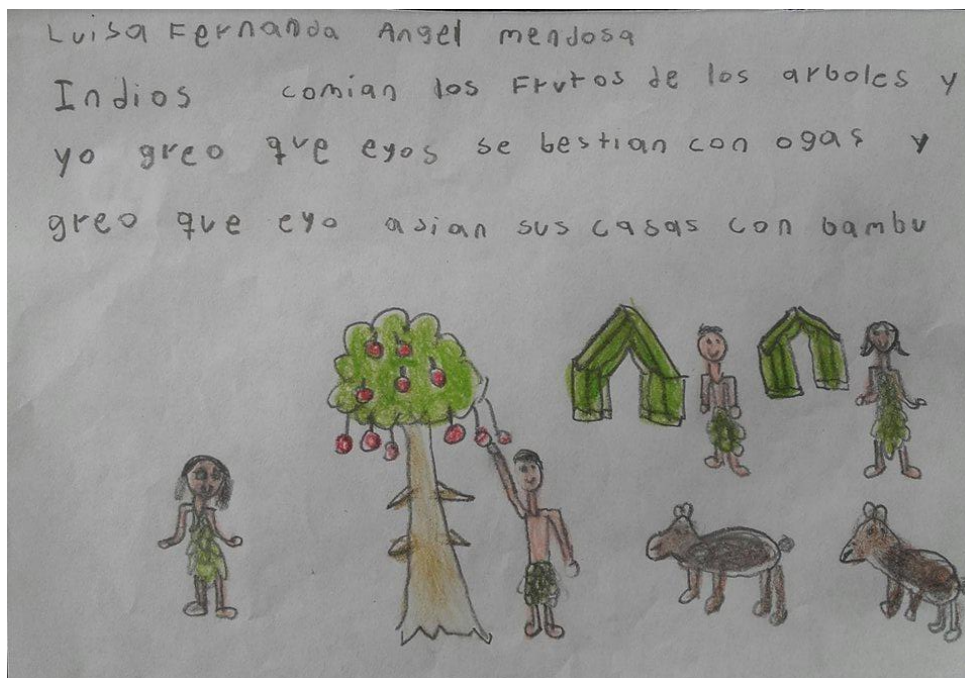 Luisa Fernanda Angel mendosa
Indios comian los Frutos de los arboles y
yo greo que eyos se bestian con ogas y
greo que eyo asian sus casas con bambu